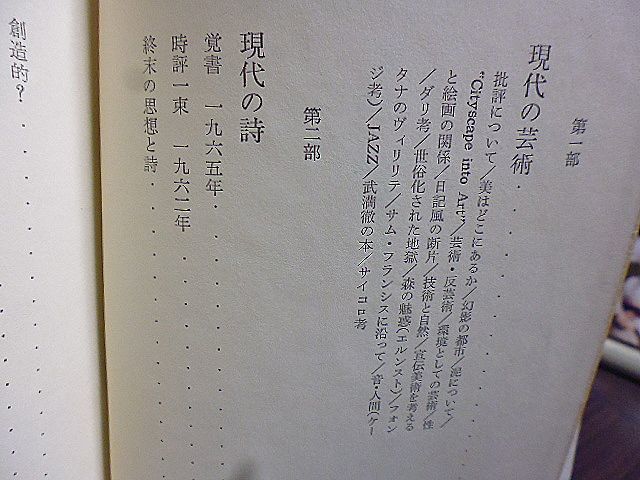 第一部
現代の芸術・・・・・・・・・・
批評について/美はどこにあるか/幻影の都市/泥について/
"Cityscape into Art"/芸術・反芸術/環境としての芸術/性
と絵画の関係/日記風の断片/技術と自然/宣伝美術を考える
/ダリ考/世俗化された地獄/森の魅惑(エルンスト)/フォン
タナのヴィリリテ/サム・フランシスに沿って/音・人間(ケー
ジ考)/JAZZ/武満徹の本/サイコロ考
第二部
現代の詩
覚書 一九六五年・・・・・・・・・・
時評一束 一九六二年・・・・・・・・
終末の思想と詩・・・・・・・・・・・
創造的?・・・・・・・・・・